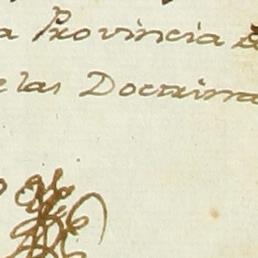 a Provincia
elas Doctrina